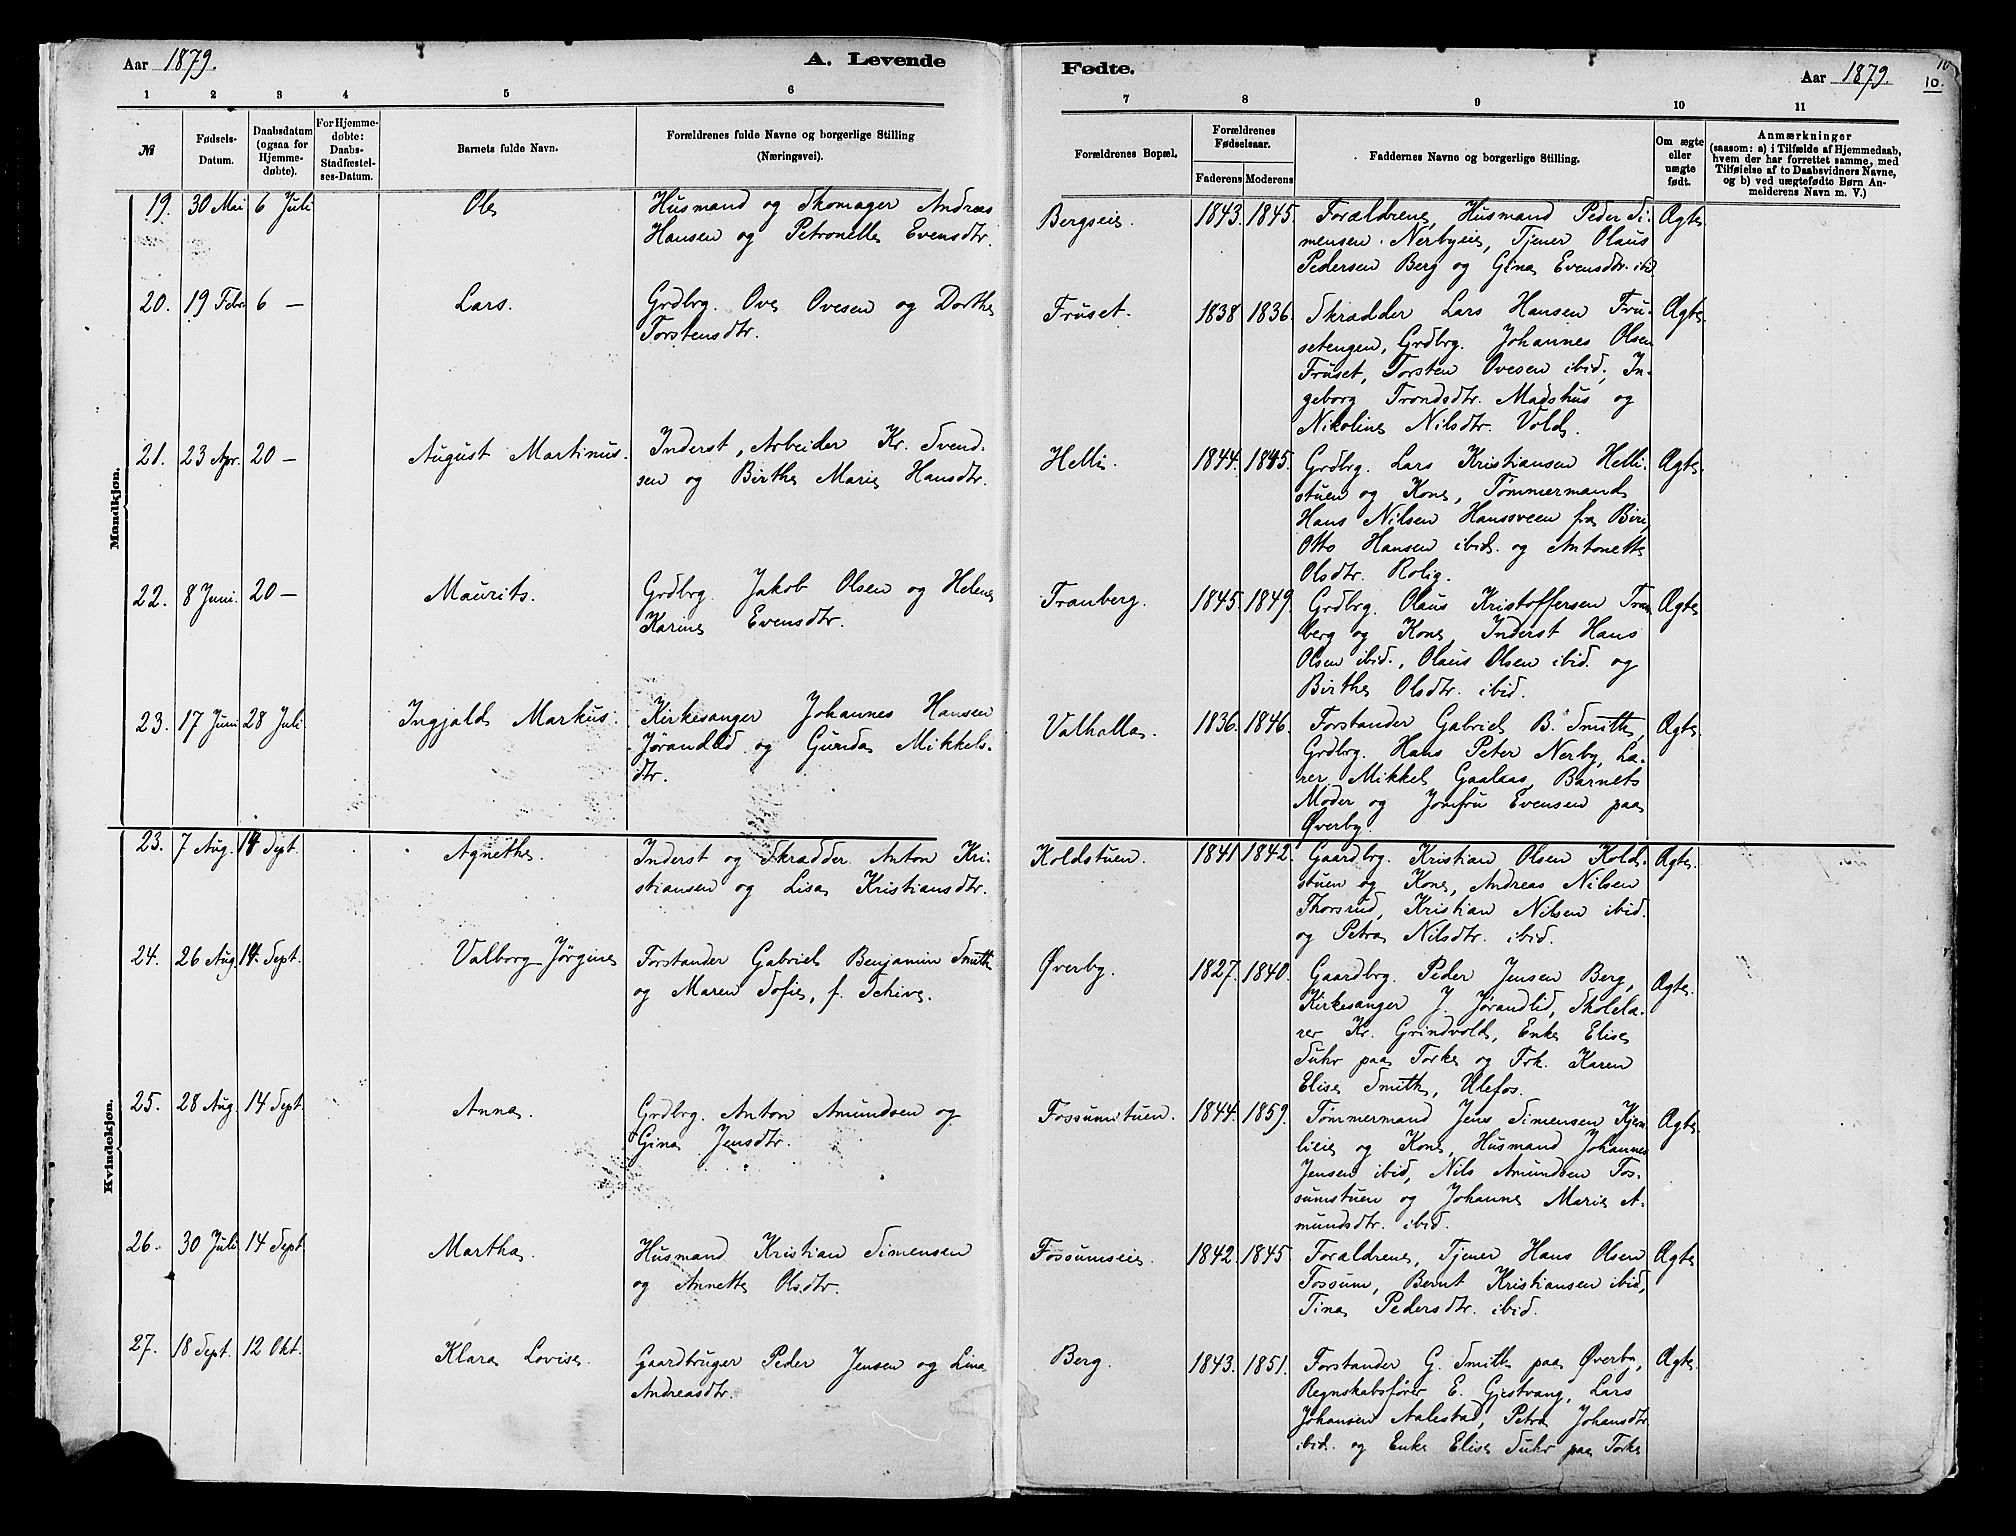 Aar 1879.
A. Levende
Fødte.
Aar 1879.
10
10.
1 2 3 4 5 6
7 8 9 10 11
№
Fødsels-
Datum.
Daabsdatum
(ogsaa for
Hjemme-
døbte).
For Hjemme-
døbte:
Daabs-
Stadfæstel-
ses-Datum.
Barnets fulde Navn.
Forældrenes fulde Navne og borgerlige Stilling
(Næringsvei).
Forældrenes Bopæl.
Forældrenes
Fødselsaar.
Faderens Moderens
Faddernes Navne og borgerlige Stilling.
Om ægte
eller
uægte
født.
Anmærkninger
(saasom: a) i Tilfælde af Hjemmedaab,
hvem der har forrettet samme, med
Tilføielse af to Daabsvidners Navne,
og b) ved uægtefødte Børn An-
melderens Navn m. V.)
Mandkjøn.
19. 30 Mai 6 Juli Ole Husmand og Skomager Andreas
Hansen og Petronelle Evensdtr.
Bergseie. 1843. 1845. Forældrene, Husmand Peder Si-
mensen Nerbyeie, Tjener Olaus
Pedersen Berg og Gina Evensdtr. ibid
Ægte
20. 19 Febr 6 — Lars. Grdbrg. Ove Ovesen og Dorthe
Torstensdtr.
Fruset. 1838 1836. Skrædder Lars Hansen Fru-
setengen, Grdbrg. Johannes Olsen
Fruset, Torsten Ovesen ibid, In-
geborg Trondsdtr. Madshus og
Nikoline Nilsdtr. Vold.
Ægte
21. 23 Apr. 20 — August Martinus. Inderst, Arbeider Kr. Svend-
sen og Birthe Marie Hansdtr.
Helli. 1844. 1845. Grdbrg. Lars Kristiansen Helli-
stuen og Kone, Tømmermand
Hans Nilsen Hanssveen fra Biri,
Otto Hansen ibid. og Antonette
Olsdtr. Rolig.
Ægte
22. 8 Juni. 20 — Maurits. Grdbrg. Jakob Olsen og Helene
Karine Evensdtr.
Tranberg. 1845. 1849. Grdbrg. Olaus Kristoffersen Tran
berg og Kone, Inderst Hans
Olsen ibid., Olaus Olsen ibid. og
Birthe Olsdtr. ibid.
Ægte
23. 17 Juni 28 Juli Ingjald Markus. Kirkesanger Johannes Hansen
Jørandlid og Gunda Mikkels-
dtr.
Valhalla. 1836. 1846. Forstander Gabriel B. Smith,
Grdbrg. Hans Peter Nerby, Læ-
rer Mikkel Gaalaas, Barnets
Moder og Jomfru Evensen paa
Øverby.
Ægte
Kvindekjøn.
23. 7 Aug. 14 Sept. Agnethe. Inderst og Skrædder Anton Kri-
stiansen og Lisa Kristiansdtr.
Koldstuen. 1841. 1842. Gaardbrg. Kristian Olsen Kold-
stuen og Kone, Andreas Nilsen
Thorsrud, Kristian Nilsen ibid.
og Petra Nilsdtr. ibid.
Ægte
24. 26 Aug. 14 Sept. Valborg Jørgine Forstander Gabriel Benjamin Smith
og Maren Sofie, f. Schive.
Øverby. 1827. 1840. Gaardbrg. Peder Jensen Berg,
Kirkesanger J. Jørandlid, Skolelæ-
rer Kr. Grindvold, Enke Elise
Suhr paa Torke og Frk. Karen
Elise Smith, Ulefos.
Ægte.
25. 28 Aug. 14 Sept. Anna. Grdbrg. Anton Amundsen og
Gina Jensdtr.
Fossumstuen. 1844. 1859. Tømmermand Jens Simensen Kjem-
lieie og Kone, Husmand Johannes
Jensen ibid, Nils Amundsen Fos-
sumstuen og Johanne Marie A-
mundsdtr. ibid.
Ægte.
26. 30 Juli 14 Sept. Martha. Husmand Kristian Simensen
og Annette Olsdtr.
Fossumseie. 1842. 1845 Forældrene, Tjener Hans Olsen
Fossum, Bernt Kristiansen ibid,
Tina Pedersdtr. ibid.
Ægte
27. 18 Sept. 12 Okt. Klara Lovise. Gaardbruger Peder Jensen og Lina
Andreasdtr.
Berg. 1843. 1851. Forstander G. Smith paa Øverby,
Regnskabsfører E. Gjestvang, Lars
Johansen Aalestad, Petra Johansdtr
ibid. og Enke Elise Suhr paa Torke
Ægte.